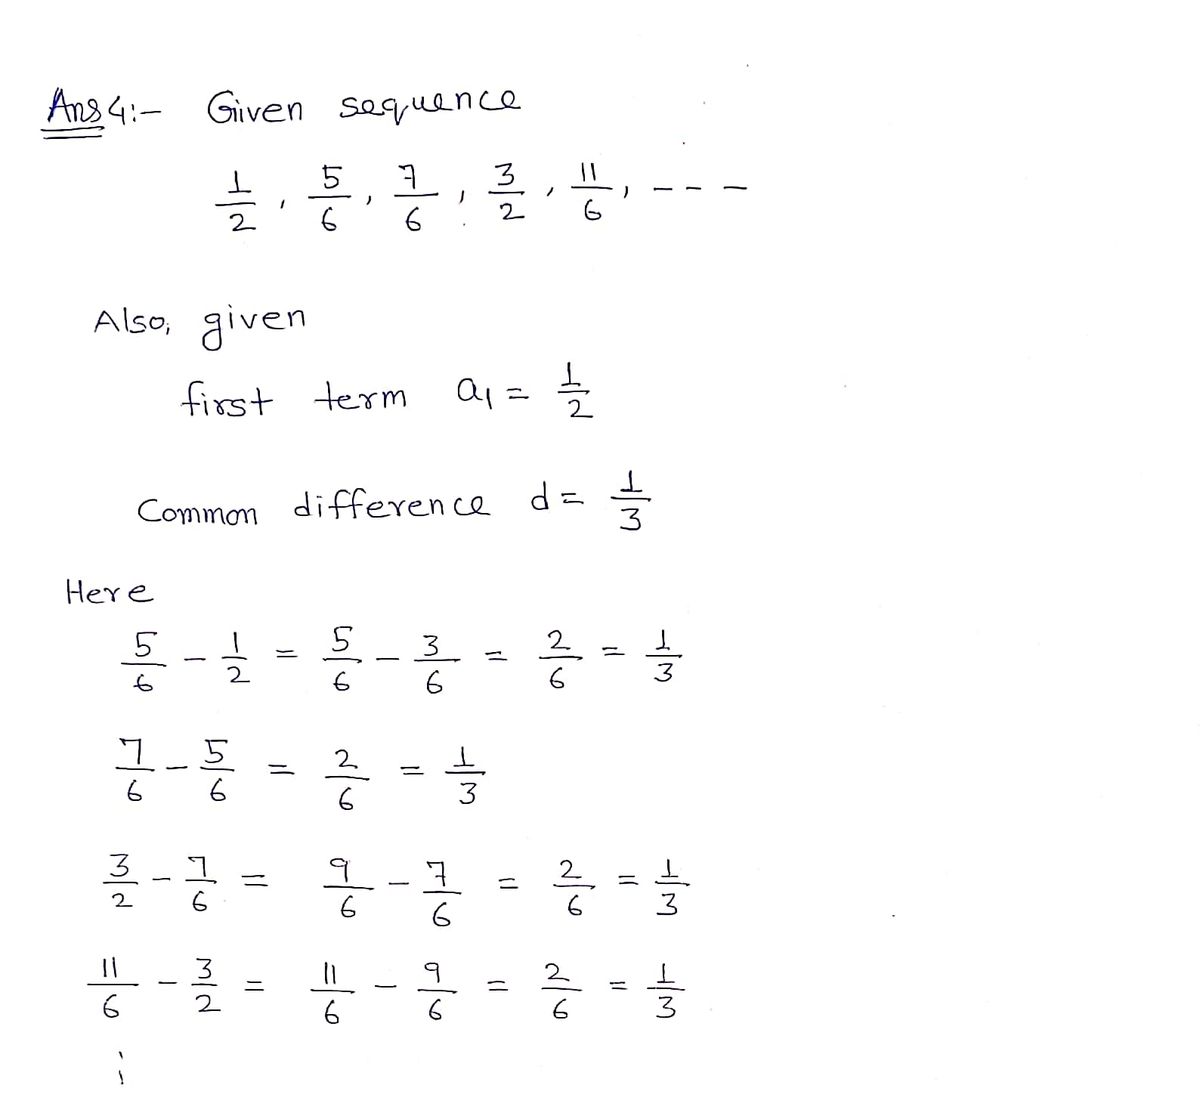 Ans 4:- Given sequence
1/2, 5/6, 7/6, 3/2, 11/6, - - -
Also, given
first term a₁ = 1/2
Common difference d = 1/3
Here
5/6 - 1/2 = 5/6 - 3/6 = 2/6 = 1/3
7/6 - 5/6 = 2/6 = 1/3
3/2 - 7/6 = 9/6 - 7/6 = 2/6 = 1/3
11/6 - 3/2 = 11/6 - 9/6 = 2/6 = 1/3
⋮